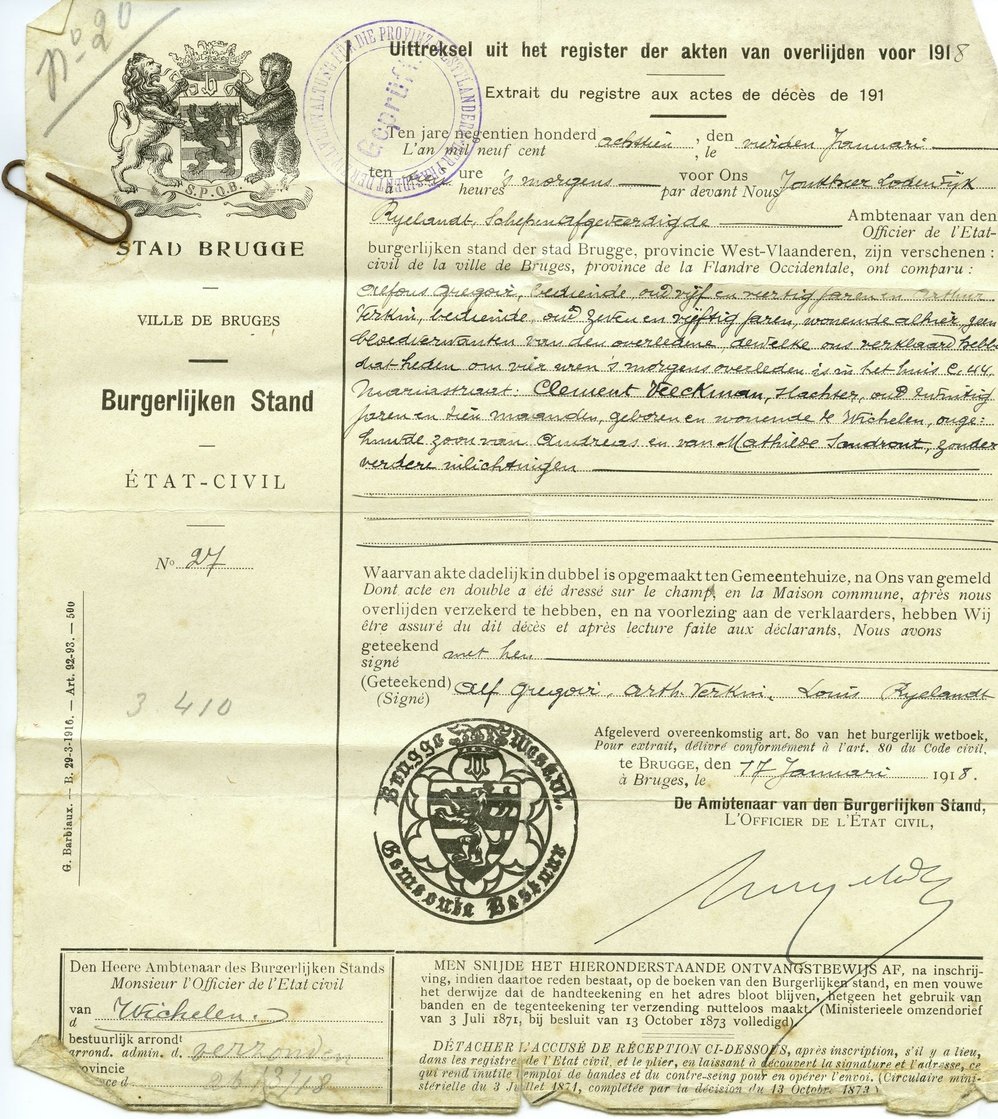 No 20
S.P.Q.B.
STAD BRUGGE
VILLE DE BRUGES
Burgerlijken Stand
ÉTAT-CIVIL
No 27
3 410
G. Barbiaux. — B. 29-3-1916. — Art. 92-93. — 500
Geprüft
Uittreksel uit het register der akten van overlijden voor 1918
Extrait du registre aux actes de décès de 191
Ten jare negentien honderd achttien, den vierden Januari
L'an mil neuf cent , le
ten ure 's morgens voor Ons Jonkheer Lodewijk
à heures par devant Nous
Ryelandt, Schepen Afgeveerdigde Ambtenaar van den
Officier de l'Etat-
burgerlijken stand der stad Brugge, provincie West-Vlaanderen, zijn verschenen :
civil de la ville de Bruges, province de la Flandre Occidentale, ont comparu :
Alfons Gregoir, bediende, oud vijf en veertig jaren en Arthur
Verkin, bediende, oud zeven en vijftig jaren, wonende alhier, geen
bloedverwanten van den overledene dewelke ons verklaard hebb
dat heden om vier uren 's morgens overleden is in het huis C. 44.
Mariastraat: Clement Veeckman, oud twintig
jaren en tien maanden, geboren en wonende te Wichelen, onge=
huwde zoon van Andreas en van Mathilde, zonder
verdere inlichtingen
Waarvan akte dadelijk in dubbel is opgemaakt ten Gemeentehuize, na Ons van gemeld
Dont acte en double a été dressé sur le champ, en la Maison commune, après nous
overlijden verzekerd te hebben, en na voorlezing aan de verklaarders, hebben Wij
être assuré du dit décès et après lecture faite aux déclarants, Nous avons
geteekend met hen
signé
(Geteekend) Alf Gregoir, Arth. Verkin, Louis Ryelandt
(Signé)
Afgeleverd overeenkomstig art. 80 van het burgerlijk wetboek,
Pour extrait, délivré conformément à l'art. 80 du Code civil,
te BRUGGE, den 17 Januari 1918.
à Bruges, le
De Ambtenaar van den Burgerlijken Stand,
L'OFFICIER DE L'ÉTAT CIVIL,
Brugge West-Vl.
Gemeente Bestuur
Den Heere Ambtenaar des Burgerlijken Stands
Monsieur l'Officier de l'Etat civil
van Wichelen
d
bestuurlijk arrondt
arrond. admin. d.
provincie
MEN SNIJDE HET HIERONDERSTAANDE ONTVANGSTBEWIJS AF, na inschrij-
ving, indien daartoe reden bestaat, op de boeken van den Burgerlijken stand, en men vouwe
het derwijze dat de handteekening en het adres bloot blijven, hetgeen het gebruik van
banden en de tegenteekening ter verzending nutteloos maakt. (Ministerieele omzendorief
van 3 Juli 1871, bij besluit van 13 October 1873 volledigd).
DÉTACHER L'ACCUSÉ DE RÉCEPTION CI-DESSOUS, après inscription, s'il y a lieu,
dans les registres de l'Etat civil, et le plier, en laissant à découvert la signature et l'adresse, ce
qui rend inutile l'emploi de bandes et du contre-seing pour en opérer l'envoi. (Circulaire mini-
stérielle du 3 Juillet 1871, complétée par la décision du 13 Octobre 1873)